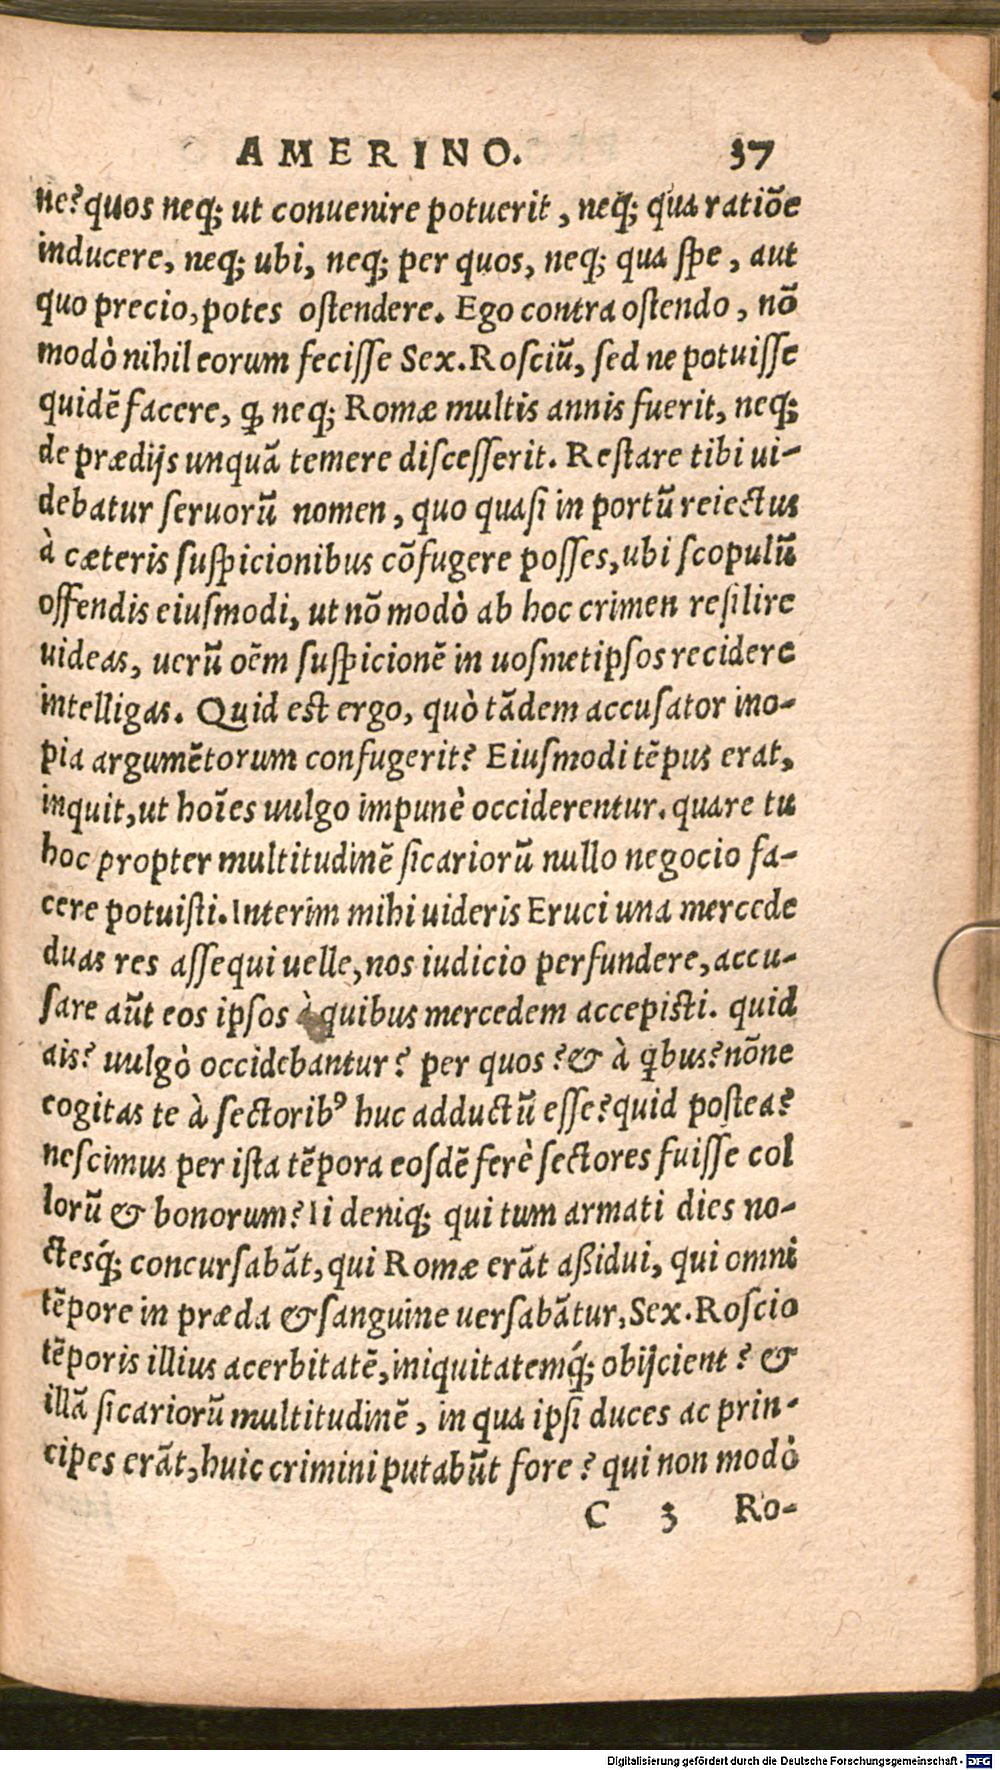 AMERINO. 37
ne? quos neq; ut conuenire potuerit, neq; qua ratiōe
inducere, neq; ubi, neq; per quos, neq; qua spe, aut
quo precio, potes ostendere. Ego contra ostendo, nō
modò nihil eorum fecisse Sex. Rosciū, sed ne potuisse
quidē facere, ꝙ neq; Romæ multis annis fuerit, neq;
de prædijs unquā temere discesserit. Restare tibi ui-
debatur seruorū nomen, quo quasi in portū reiectus
à cæteris suspicionibus cōfugere posses, ubi scopulū
offendis eiusmodi, ut nō modò ab hoc crimen resilire
uideas, uerū oēm suspicionē in uosmetipsos recidere
intelligas. Quid est ergo, quò tādem accusator ino-
pia argumētorum confugerit? Eiusmodi tēpus erat,
inquit, ut hoīes uulgo impunè occiderentur. quare tu
hoc propter multitudinē sicariorū nullo negocio fa-
cere potuisti. Interim mihi uideris Eruci una mercede
duas res assequi uelle, nos iudicio perfundere, accu-
sare aūt eos ipsos à quibus mercedem accepisti. quid
ais? uulgò occidebantur? per quos? & à ꝗbus? nōne
cogitas te à sectorib⁹ huc adductū esse? quid postea?
nescimus per ista tēpora eosdē ferè sectores fuisse col
lorū & bonorum? Ii deniq; qui tum armati dies no-
ctesq́; concursabāt, qui Romæ erāt aßidui, qui omni
tēpore in præda & sanguine uersabātur, Sex. Roscio
tēporis illius acerbitatē, iniquitatemq́; obijcient? &
illā sicariorū multitudinē, in qua ipsi duces ac prin-
cipes erāt, huic crimini putabūt fore? qui non modò
C 3 Ro-
Digitalisierung gefördert durch die Deutsche Forschungsgemeinschaft - DFG